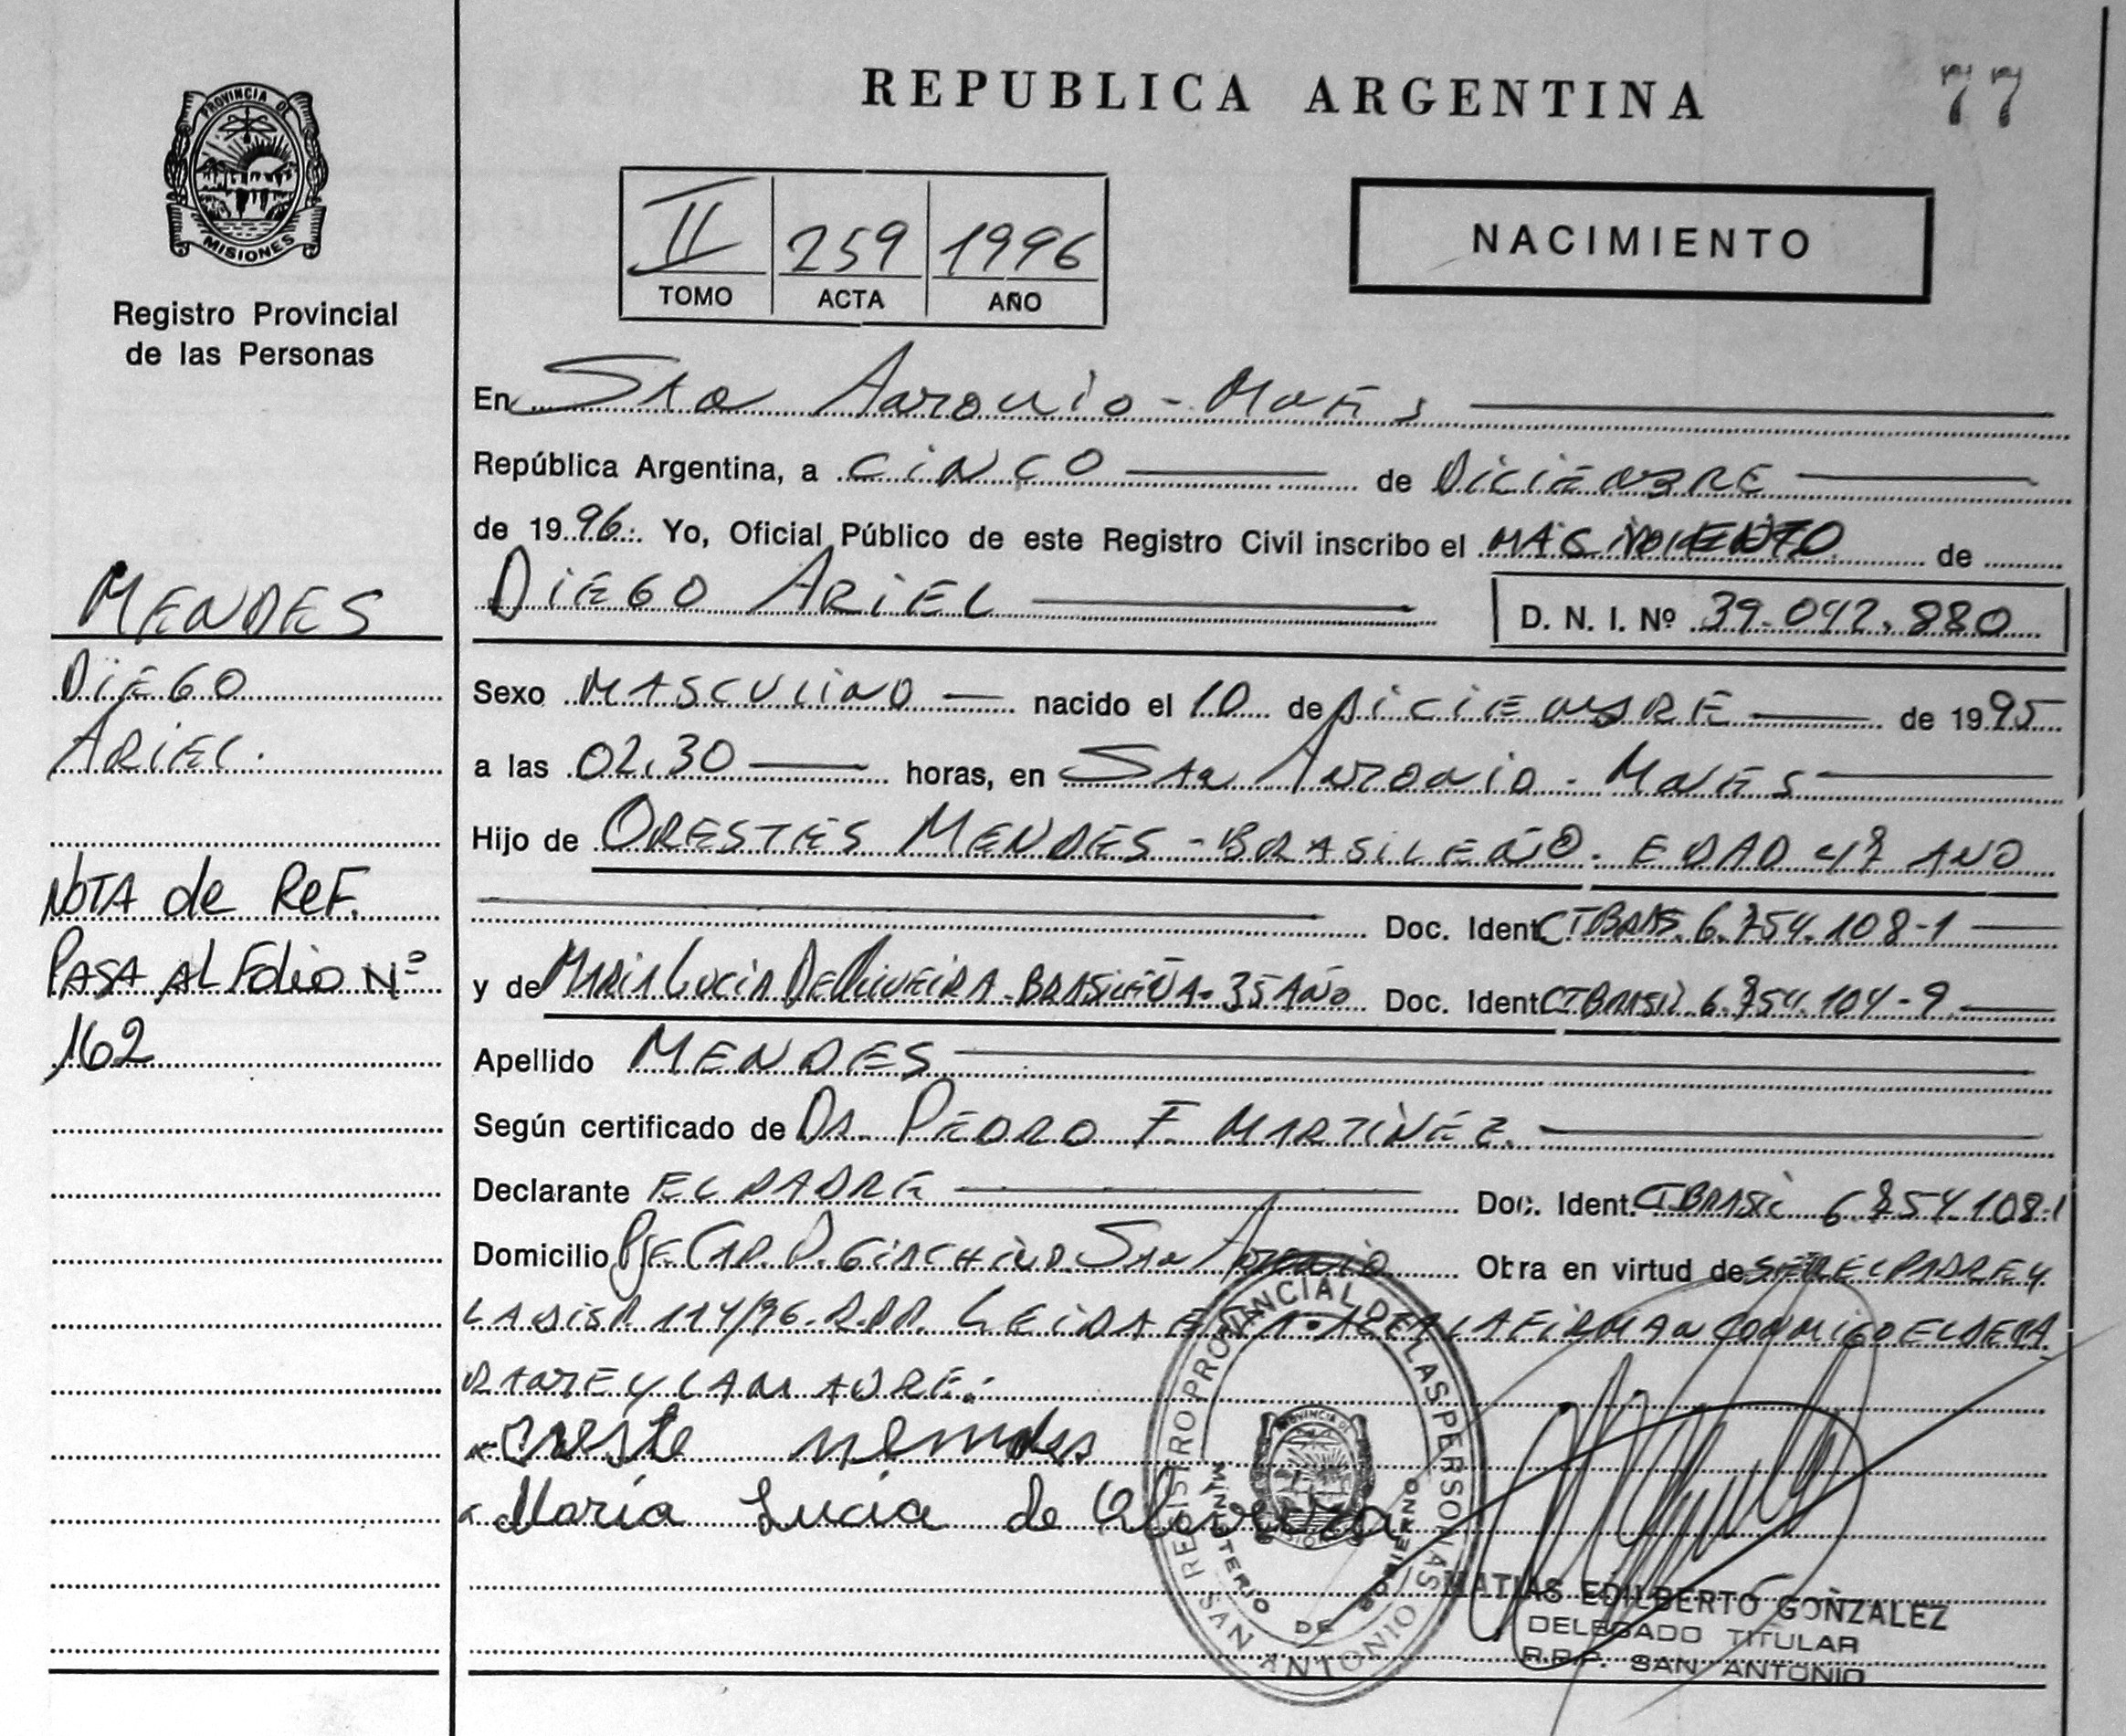 REPUBLICA ARGENTINA
77
PROVINCIA DE
MISIONES
Registro Provincial
de las Personas
II 259 1996
TOMO ACTA AÑO
NACIMIENTO
En San Antonio - Mnes
República Argentina, a CINCO de DICIEMBRE
de 1996. Yo, Oficial Público de este Registro Civil inscribo el NACIMIENTO de
DIEGO ARIEL D. N. I. Nº 39.042.880
MENDES
DIEGO
ARIEL.
NOTA de REF.
PASA AL Folio Nº
162
Sexo MASCULINO nacido el 10 de DICIEMBRE de 1995
a las 02.30 horas, en San Antonio - Mnes
Hijo de ORESTES MENDES - BRASILEÑO. EDAD 47 AÑO
Doc. Ident. CIBRAS. 6.754.108-1
y de MARIA LUCIA DE OLIVEIRA - BRASILEÑA - 35 AÑO Doc. Ident. CIBRASIL 6.754.104-9
Apellido MENDES
Según certificado de DR. PEDRO F. MARTINEZ.
Declarante EL PADRE Doc. Ident. CIBRASI 6754.108-1
Domicilio PJE CAP. P. GIACHINO. SAN ANTONIO Obra en virtud de SER EL PADRE Y
LA DISP. 114/96. R.P.P. LEIDA EL ACTA LA FIRMAN CONMIGO EL DECLA
RANTE Y LA MADRE.
oreste mendes
Maria Lucia de Oliveira
REGISTRO PROVINCIAL DE LAS PERSONAS
PROVINCIA DE
MISIONES
MINISTERIO DE GOBIERNO
SAN ANTONIO
MATIAS EDILBERTO GONZALEZ
DELEGADO TITULAR
R.P.P. SAN ANTONIO